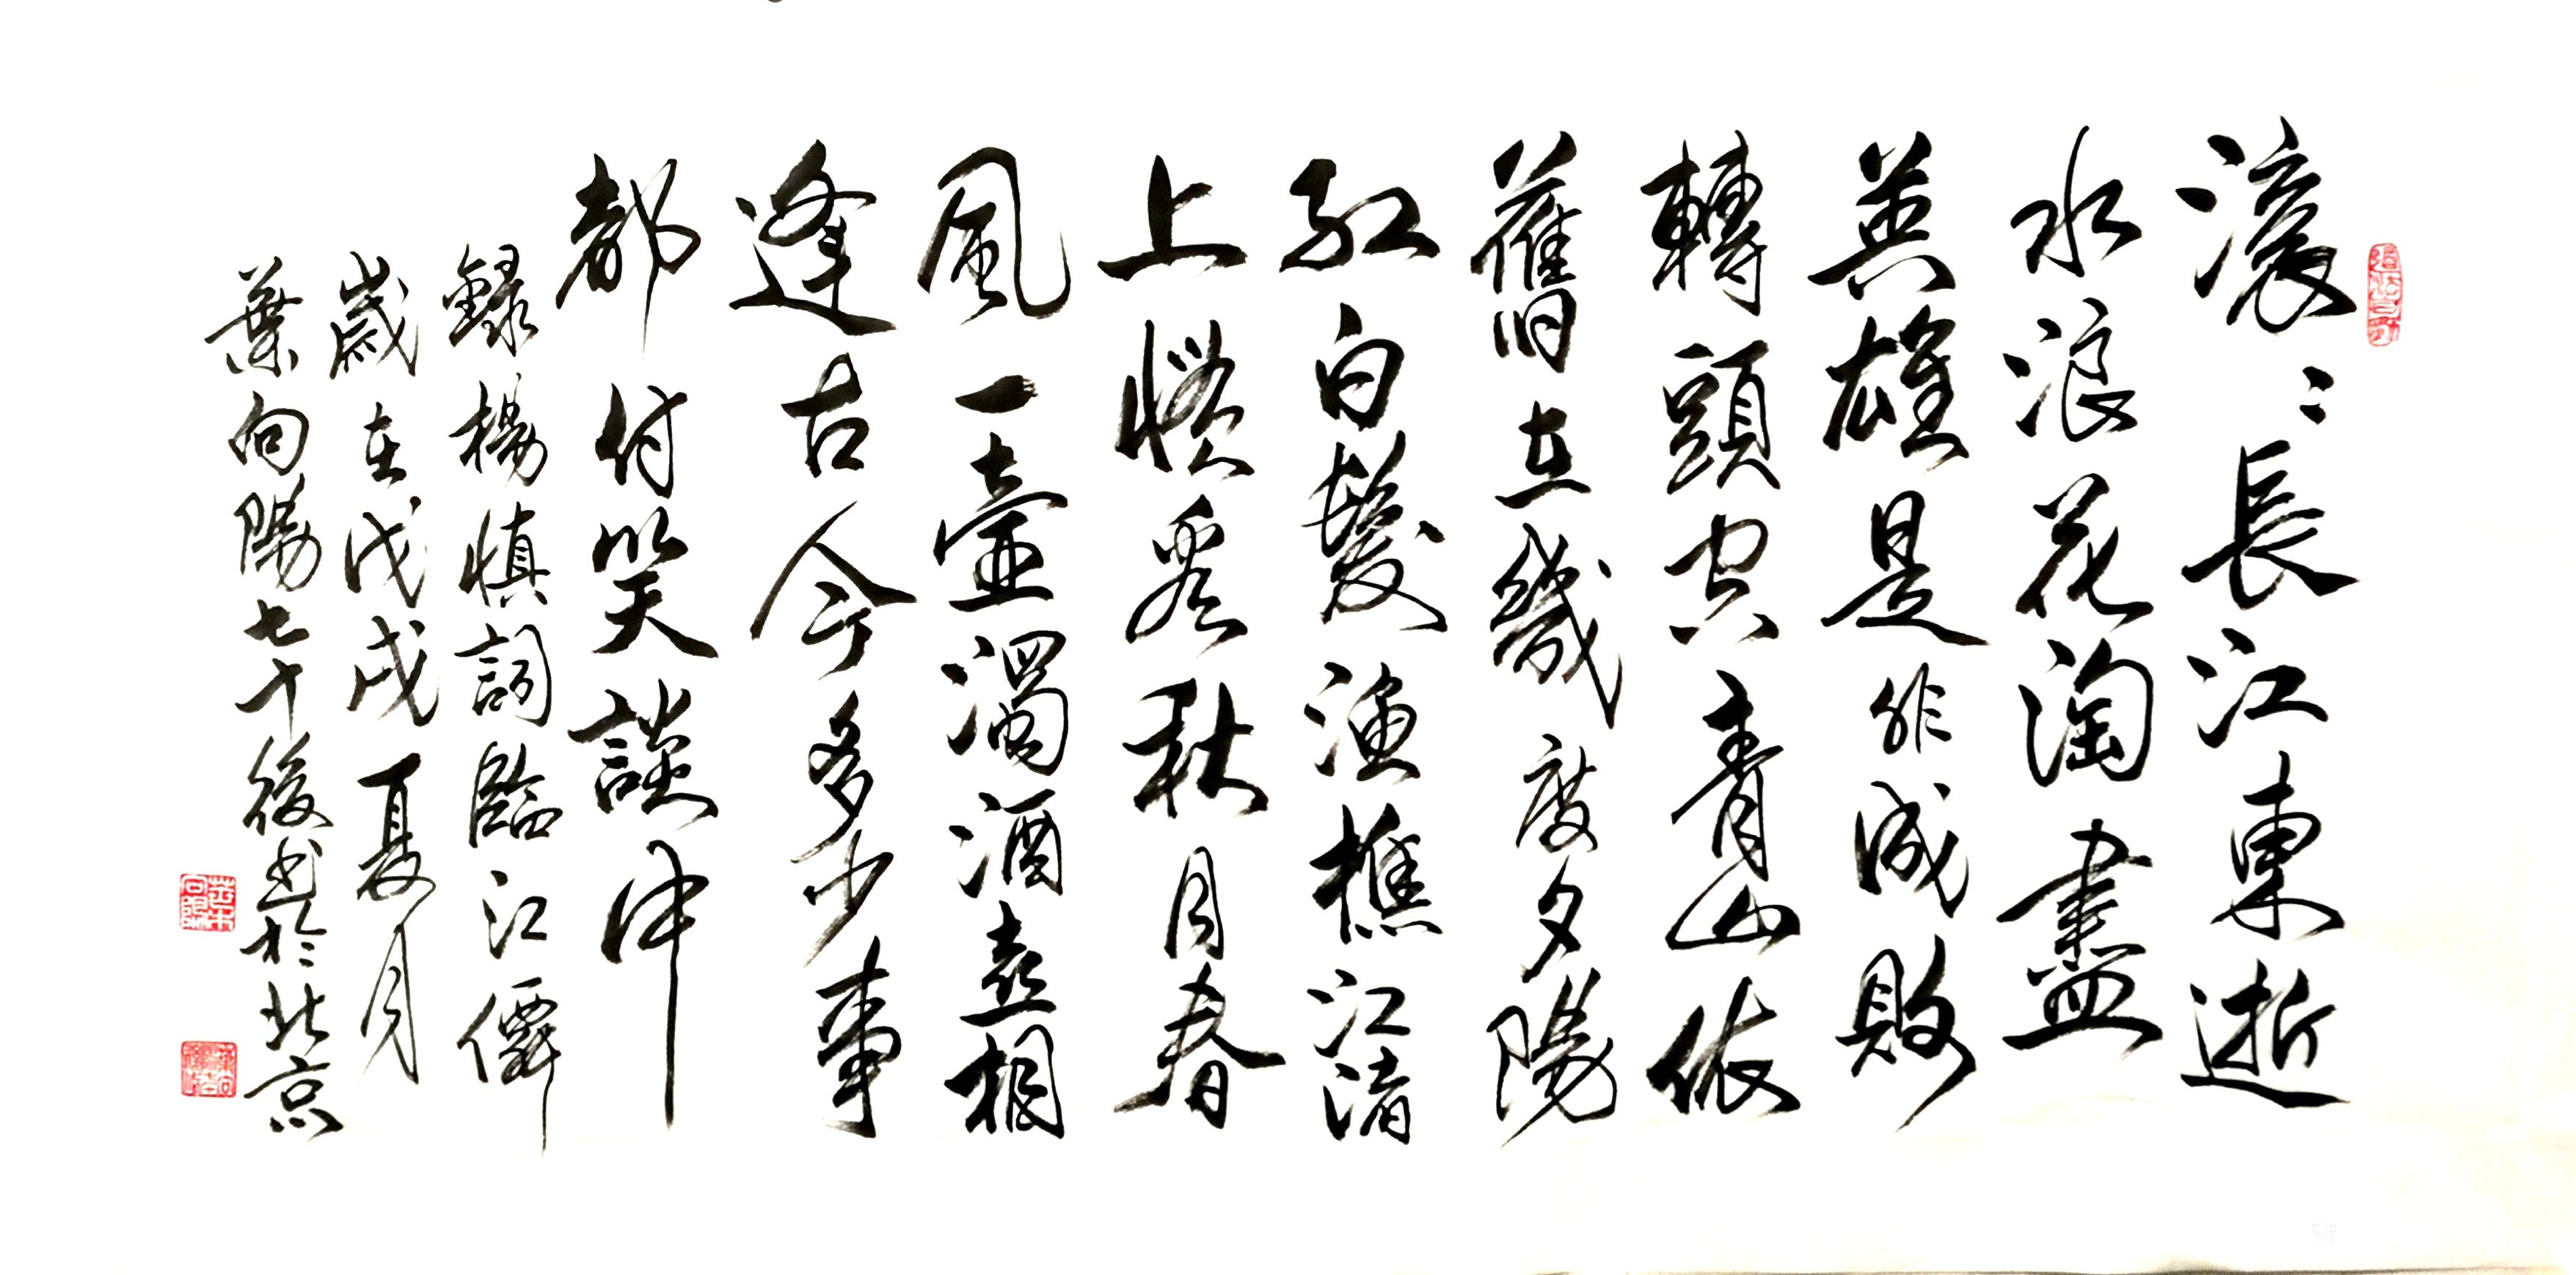 滚〻長江東逝
水浪花淘盡
英雄是非成敗
轉頭空青山依
舊在幾度夕陽
紅白髮漁樵江渚
上惯看秋月春
風一壺濁酒喜相
逢古今多少事
都付笑談中
録楊慎詞臨江僊
歲在戊戌夏月
葉向陽七十後书於北京